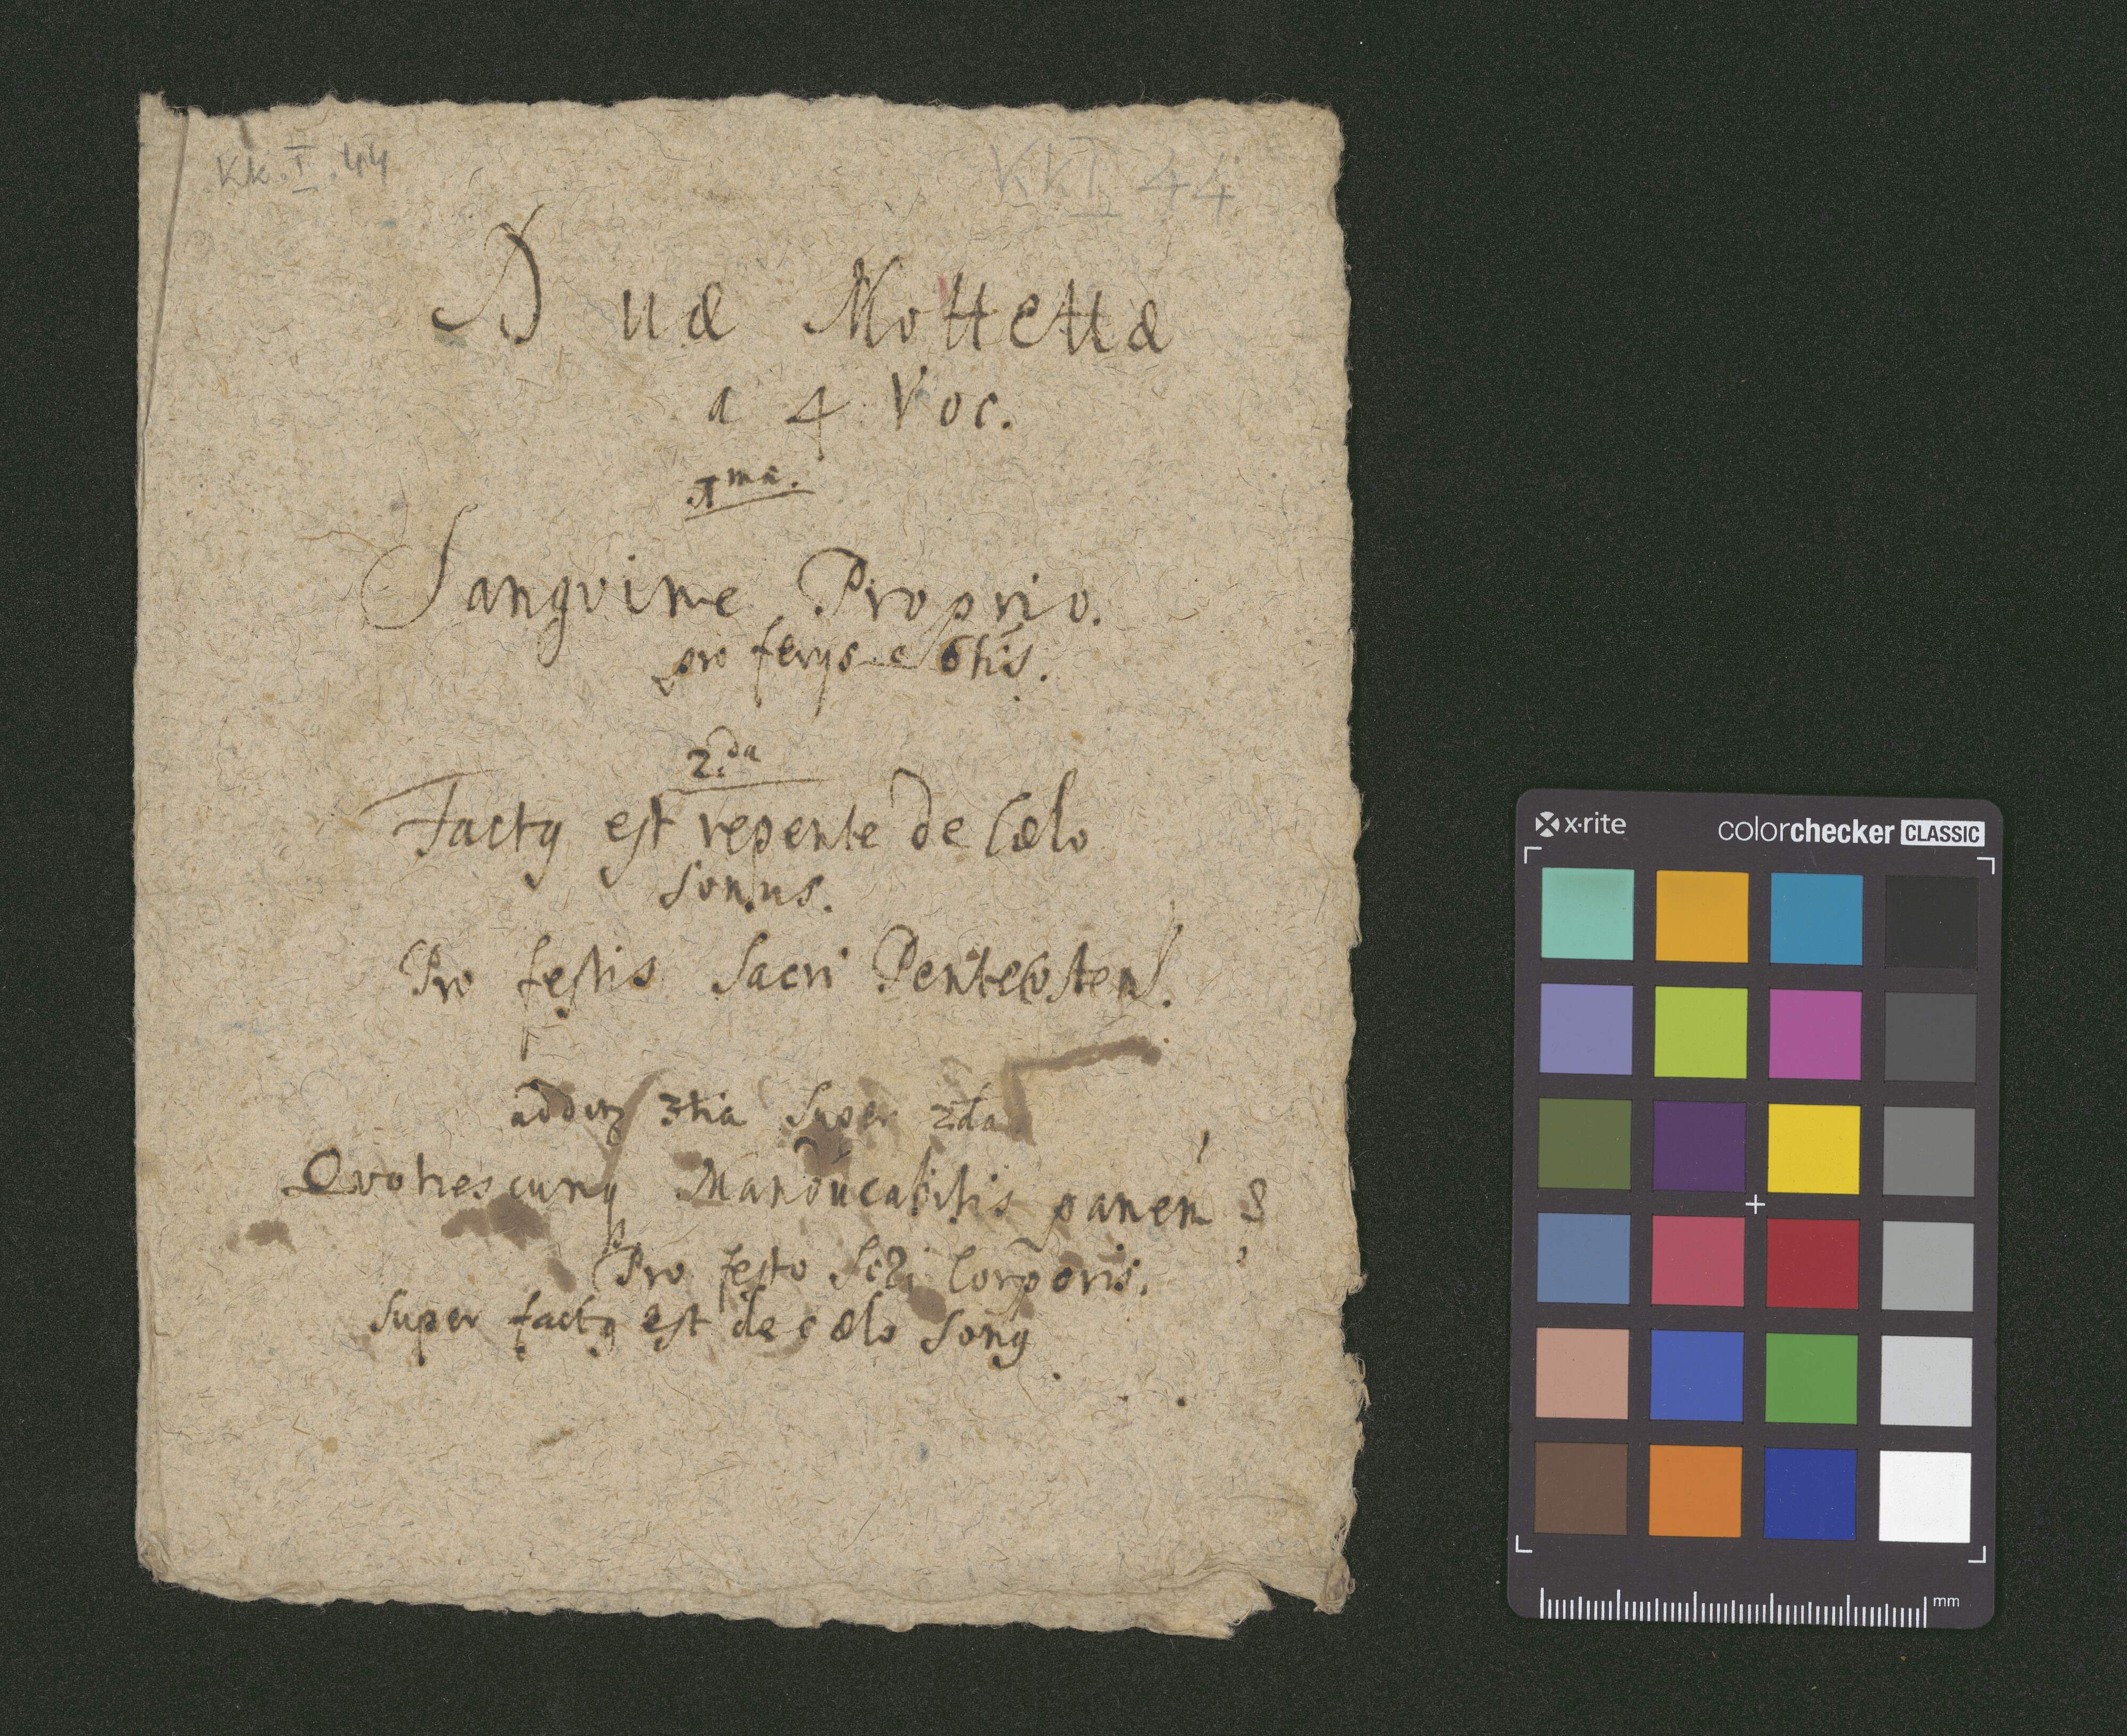 Kk.I.44
KkI 44
Duæ Mottettæ
a 4 Voc.
1ma.
Sangvine Proprio.
pro ferijs 6tis.
2.da
Factq est repente de Cælo
Sonus.
Pro festis Sacri Pentecosten.
3tia Super 2da
Qvotiescunq Manducabitis panem
Pro festo Corporis.
Super factq est de cælo Sonq
x-rite
colorchecker CLASSIC
mm